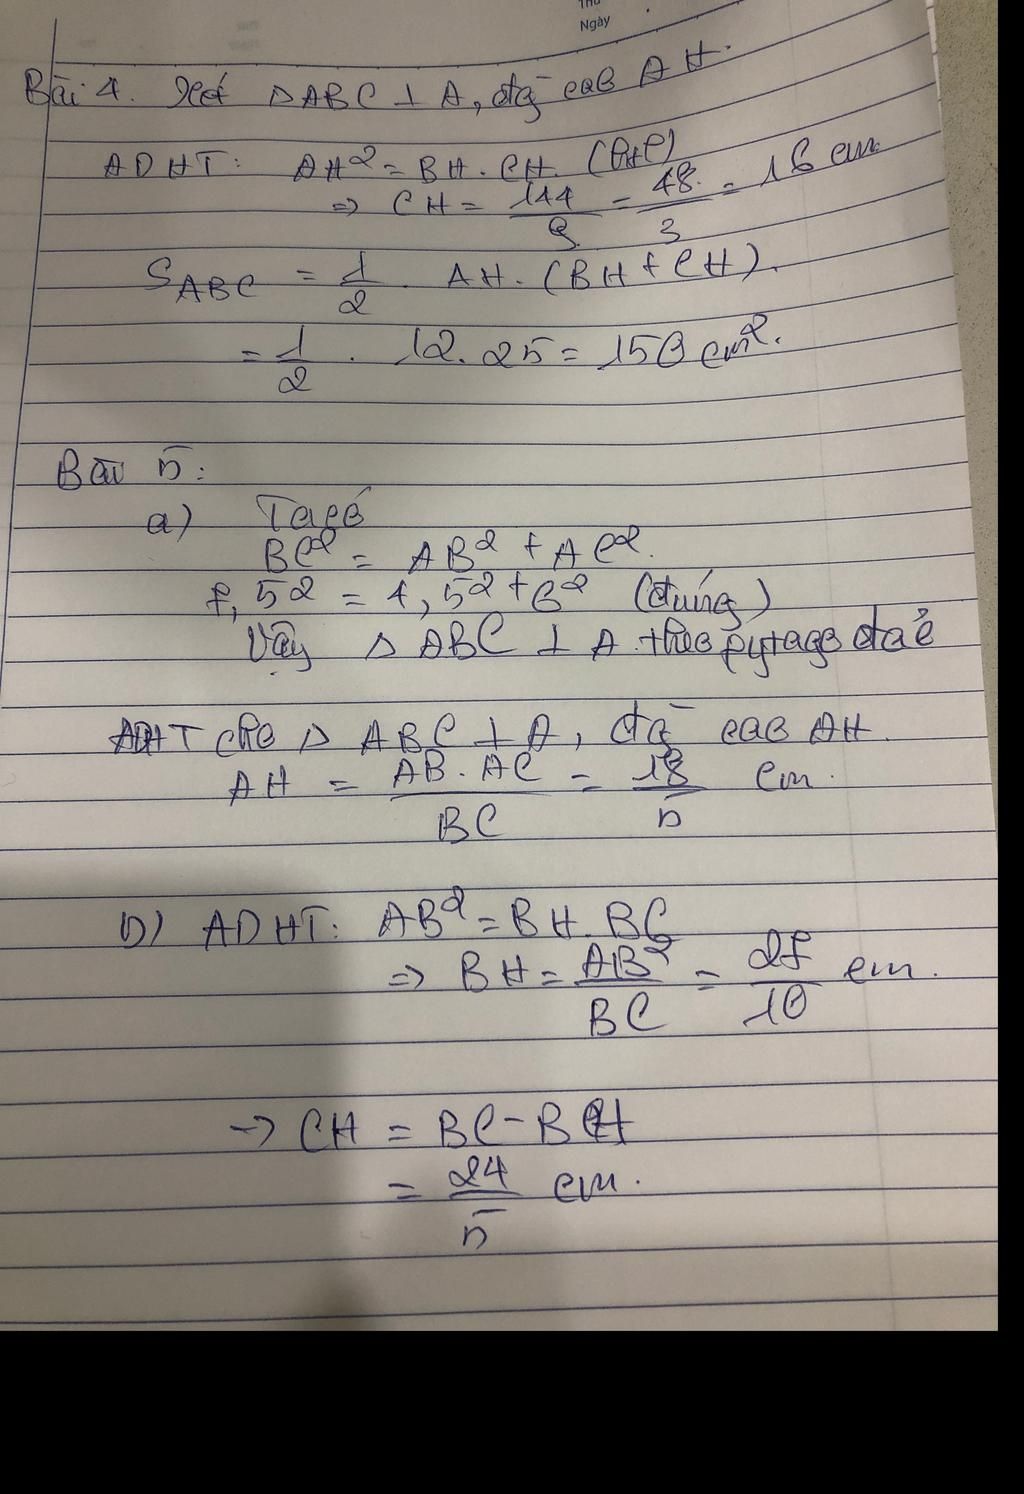 Thứ
Ngày
Bài 4. Xét △ABC ⊥ A, đg cao AH.
ADHT: AH² = BH . CH. (htl)
⇒ CH = 144/9 = 48/3 = 16 cm
S_ABC = 1/2 . AH . (BH + CH).
= 1/2 . 12 . 25 = 150 cm².
Bài 5:
a) Ta có
BC² = AB² + AC².
7,5² = 4,5² + 6² (đúng)
Vậy △ ABC ⊥ A theo pytago đảo
ADHT cho △ ABC ⊥ A, đg cao AH.
AH = AB . AC / BC = 18/5 cm.
b) ADHT: AB² = BH . BC
⇒ BH = AB²/BC = 27/10 cm.
→ CH = BC - BH
= 24/5 cm.